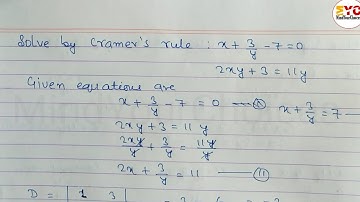 ZYC
Solve by Cramer's rule : x + 3/y - 7 = 0
2xy + 3 = 11y
Given equations are
x + 3/y - 7 = 0 — (A) x + 3/y = 7 —
2xy + 3 = 11 y
2xy/y + 3/y = 11y/y
2x + 3/y = 11 — (II)
D = | 1 3